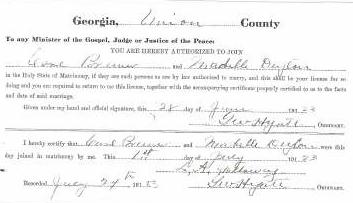 Georgia, Union County
To any Minister of the Gospel, Judge or Justice of the Peace:
YOU ARE HEREBY AUTHORIZED TO JOIN
and
in the Holy State of Matrimony, if they are such persons as are by law authorized to marry, and this shall be your license for so
doing and you are required to return to me this license, together with the accompanying certificate properly certified to as to the facts
and date of said marriage.
Given under my hand and official signature, this 28 day of June 191 23
ORDINARY.
I hereby certify that and were this
day joined in matrimony by me. This 1st day July 191 23
Recorded July 27th 191
ORDINARY.